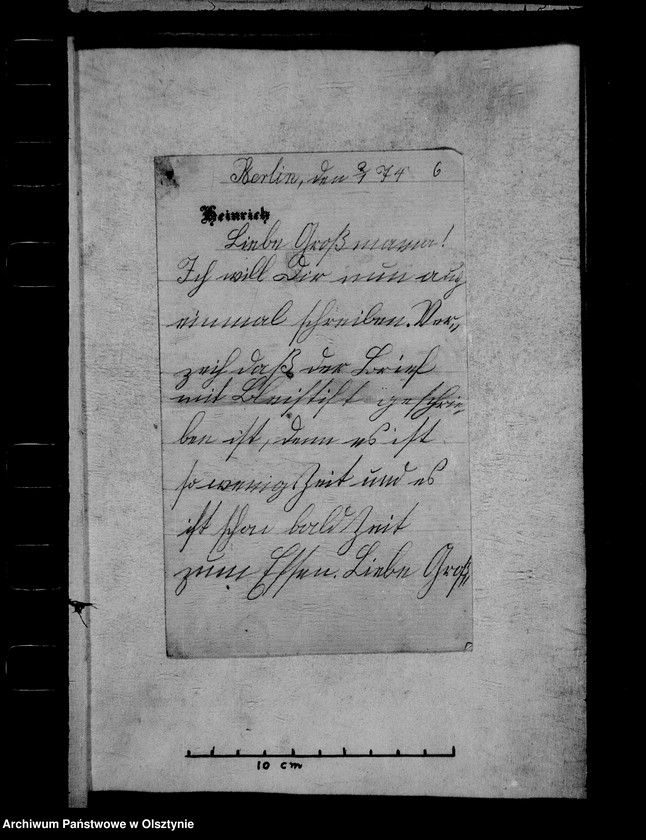 Berlin, den 74 6
Heinrich
Liebe Großmama!
Ich will Dir nun auch
einmal schreiben. Ver„
zeih daß der Brief
mit Bleistift geschrie„
ben ist, denn es ist
so wenig Zeit und es
ist schon bald Zeit
zum Essen. Liebe Groß„
10 cm
Archiwum Państwowe w Olsztynie